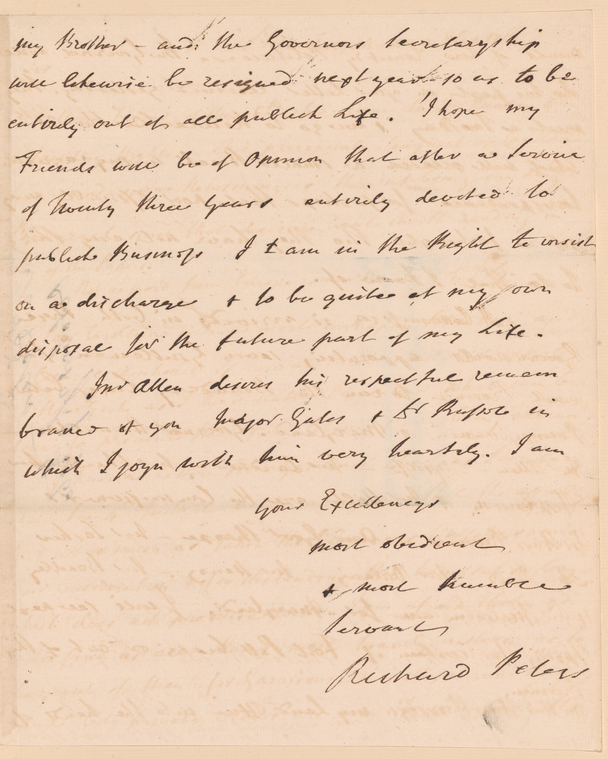 my Brother – and the Governors Secretaryship
will likewise be resigned next year so as to be
entirely out of all publick Life. I hope my
Friends will be of Opinion that after a Service
of Twenty three Years entirely devoted to
publick Business I am in the Right to insist
on a discharge & to be quite at my own
disposal for the future part of my Life.
Mr Allen desires his respectful remem
brance of you Major Gates & Dr in
which I joyn with him very heartily. I am
Your Excellencys
most obedient
& most humble
Servant
Richard Peters